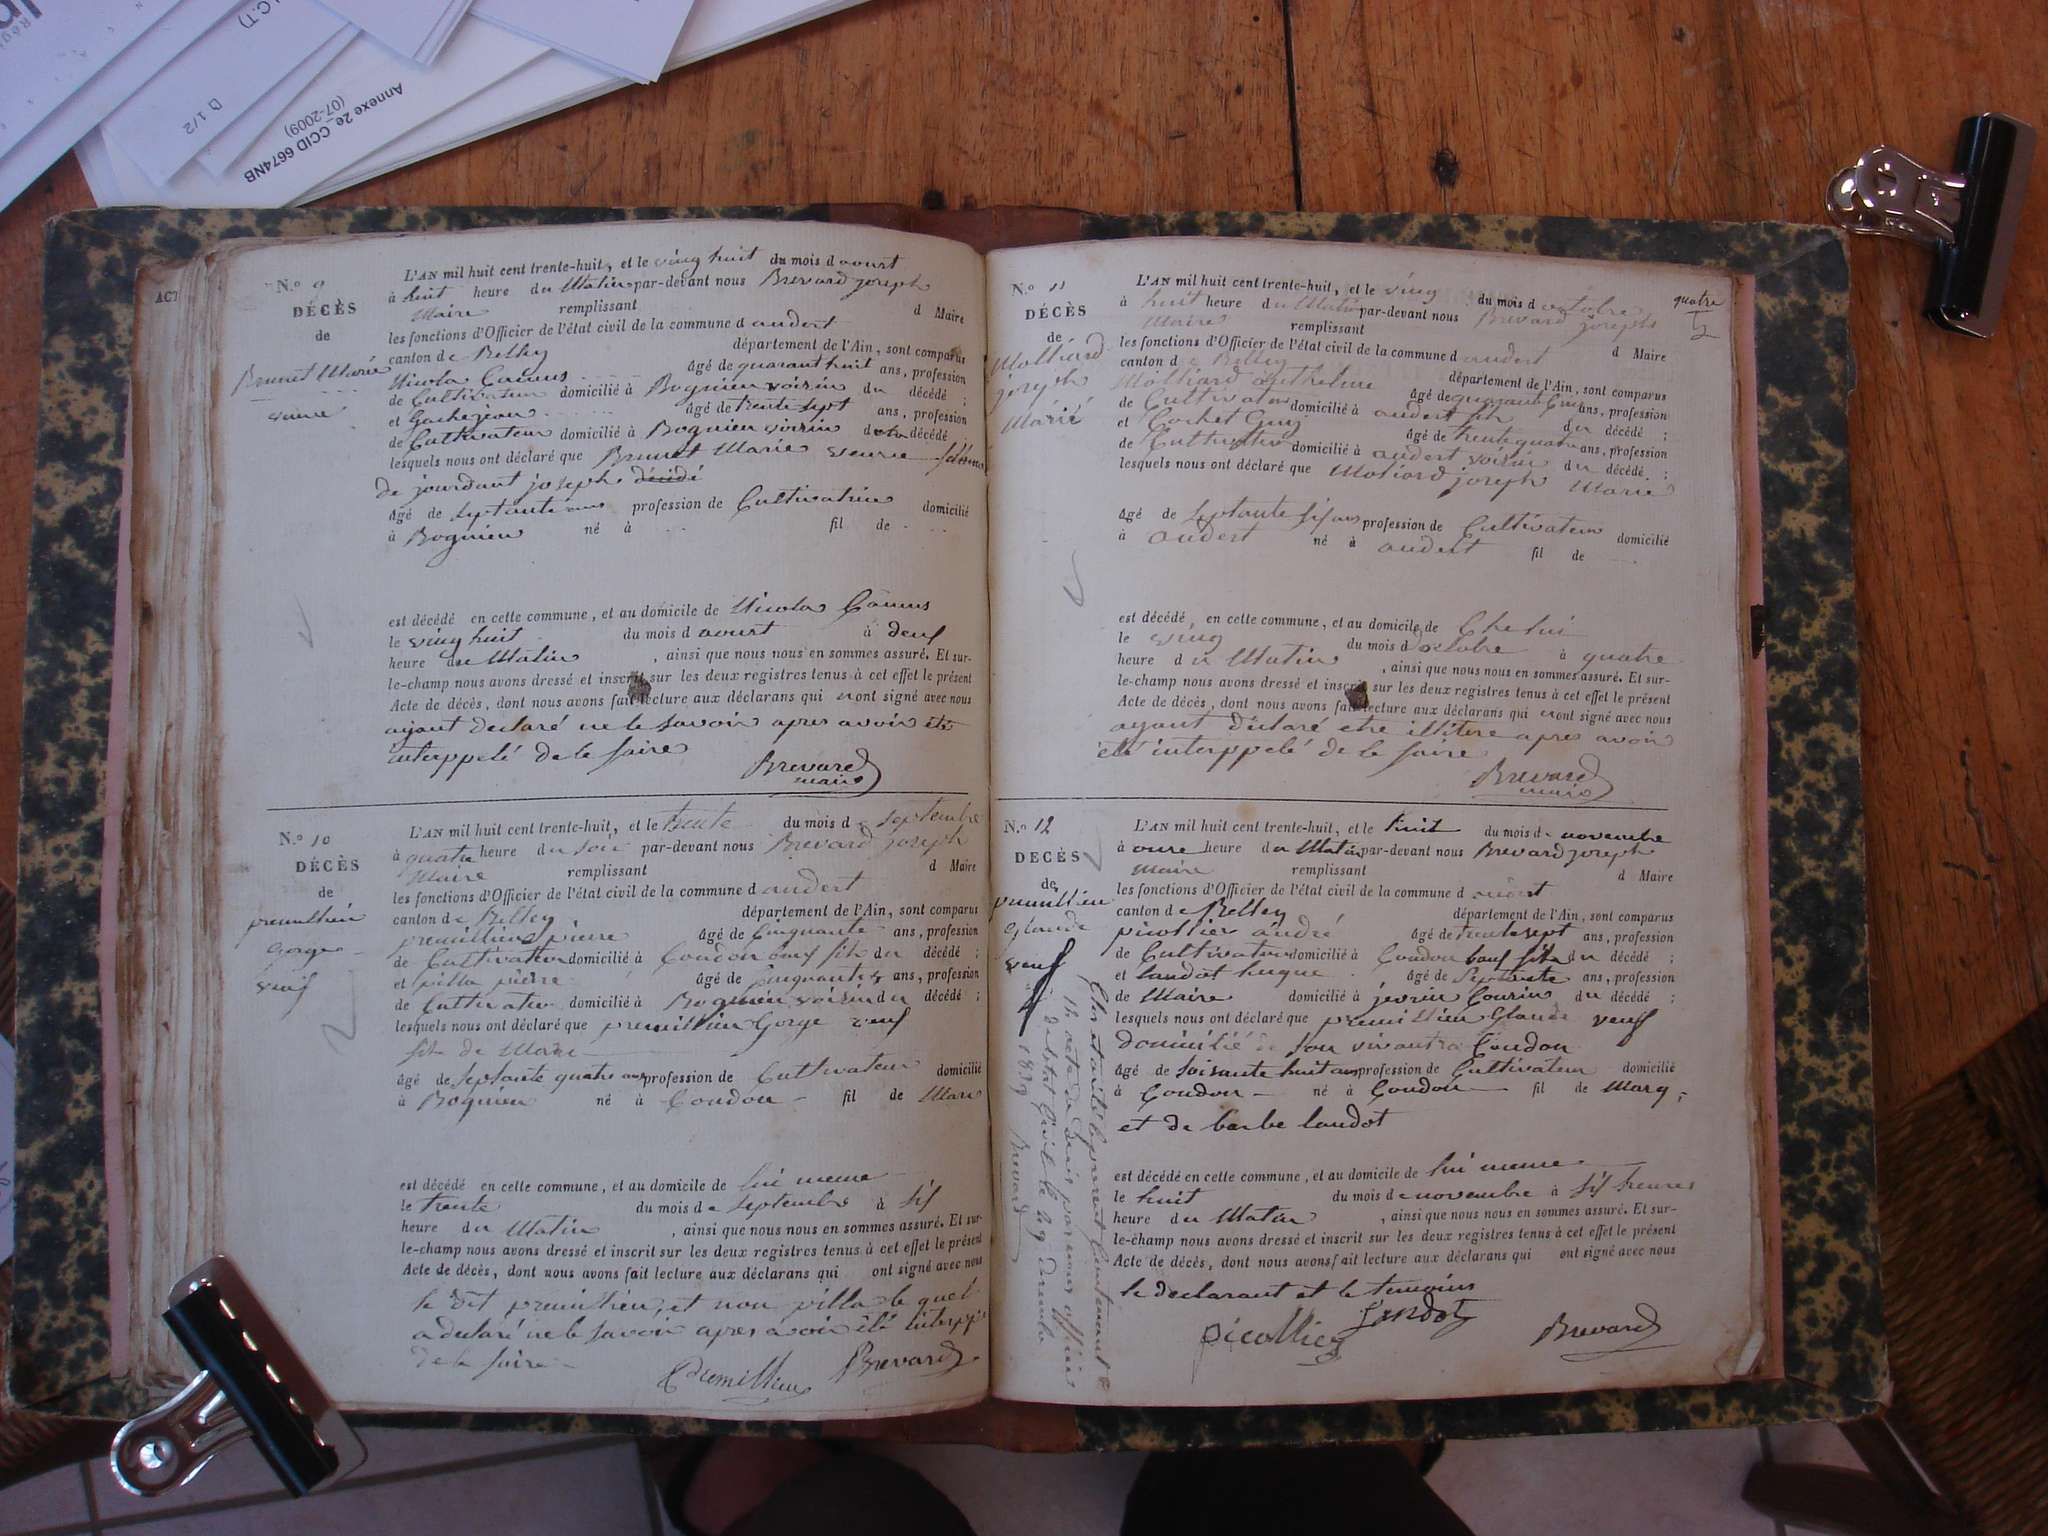 Annexe 2e CCID 6674NB
(07-2009)
D 1/2
C.T)
ACT
N.º 9
DÉCÈS
de
Brunet Marie
veuve
L'AN mil huit cent trente-huit, et le ving huit du mois d aoust
à huit heure du Matin par-devant nous Brevard joseph
Maire remplissant d Maire
les fonctions d'Officier de l'état civil de la commune d andert
canton de Belley département de l'Ain, sont comparus
Nicola Camus âgé de quarant huit ans, profession
de Cultivateur domicilié à Bognien voisin du décédé ;
et Gache jean âgé de trente sept ans, profession
de Cultivateur domicilié à Bognien voisin de la décédé
lesquels nous ont déclaré que Brunet Marie veuve
de jourdant joseph décidé
âgé de septante ans profession de Cultivatrice domicilié
à Bognien né à fil de
est décédé en cette commune, et au domicile de Nicola Camus
le ving huit du mois d aoust à deux
heure du Matin , ainsi que nous nous en sommes assuré. Et sur-
le-champ nous avons dressé et inscrit sur les deux registres tenus à cet effet le présent
Acte de décès, dont nous avons fait lecture aux déclarans qui n ont signé avec nous
ayant declaré ne le savoir apres avoir été
interppelé de le faire
Brevard
maire
N.º 10
DÉCÈS
de
premillieu
Gorge
veuf
L'AN mil huit cent trente-huit, et le trente du mois de septembre
à quatre heure du soir par-devant nous Brevard joseph
Maire remplissant d Maire
les fonctions d'Officier de l'état civil de la commune d andert
canton de Belley département de l'Ain, sont comparus
premillieu pierre âgé de Cinquante ans, profession
de Cultivateur domicilié à Coudon fils du décédé ;
et pilla pierre âgé de ans, profession
de Cultivateur domicilié à Bognien voisin du décédé ;
lesquels nous ont déclaré que premillieu Gorge veuf
fils de Marc
âgé de septante quatre ans profession de Cultivateur domicilié
à Bognien né à Coudon fil de Marc
est décédé en cette commune, et au domicile de lui meme
le trente du mois de septembre à six
heure du Matin , ainsi que nous nous en sommes assuré. Et sur-
le-champ nous avons dressé et inscrit sur les deux registres tenus à cet effet le présent
Acte de décès, dont nous avons fait lecture aux déclarans qui ont signé avec nous
le dit premilieu, et non pilla le quel
a declaré ne le savoir apres avoir été interpp
de le faire
Premillieu Brevard
N.º 11
DÉCÈS
de
Molliard
joseph
Marié
quatre
L'AN mil huit cent trente-huit, et le ving du mois d octobre
à huit heure du Matin par-devant nous Brevard joseph
Maire remplissant d Maire
les fonctions d'Officier de l'état civil de la commune d andert
canton de Belley département de l'Ain, sont comparus
Molliard anthelme âgé de quarante Cinq ans, profession
de Cultivateur domicilié à andert fils du décédé ;
et Cochet Guy âgé de trente quatre ans, profession
de Cultivateur domicilié à andert voisin du décédé ;
lesquels nous ont déclaré que Moliard joseph Marié
âgé de septante six ans profession de Cultivateur domicilié
à andert né à andert fil de
est décédé, en cette commune, et au domicile de Che lui
le ving du mois d octobre à quatre
heure du Matin , ainsi que nous nous en sommes assuré. Et sur-
le-champ nous avons dressé et inscrit sur les deux registres tenus à cet effet le présent
Acte de décès, dont nous avons fait lecture aux déclarans qui n ont signé avec nous
ayant déclaré etre illitere apres avoir
été interppelé de le faire
Brevard
maire
N.º 12
DÉCÈS
de
premillieu
Glaude
veuf
L'AN mil huit cent trente-huit, et le huit du mois de novembre
à onze heure du Matin par-devant nous Brevard joseph
Maire remplissant d Maire
les fonctions d'Officier de l'état civil de la commune d andert
canton de Belley département de l'Ain, sont comparus
picollier andré âgé de trente sept ans, profession
de Cultivateur domicilié à Coudon beau fils du décédé ;
et landot hugue âgé de Septante ans, profession
de Maire domicilié à Cousin du décédé ;
lesquels nous ont déclaré que premillieu Glaude veuf
domicilié de son vivant à Coudon
âgé de soisante huit ans profession de Cultivateur domicilié
à Coudon né à Coudon fil de Marq,
et de barbe landot
est décédé en cette commune, et au domicile de lui meme
le huit du mois de novembre à six heures
heure du Matin , ainsi que nous nous en sommes assuré. Et sur-
le-champ nous avons dressé et inscrit sur les deux registres tenus à cet effet le présent
Acte de décès, dont nous avons fait lecture aux déclarans qui ont signé avec nous
le declarant et le temoins
picollier Landot Brevard
Clos et arrêté le present Contenant
12 acte de deces par nous officier
de l'etat Civil le 29 decembre
1839 Brevard